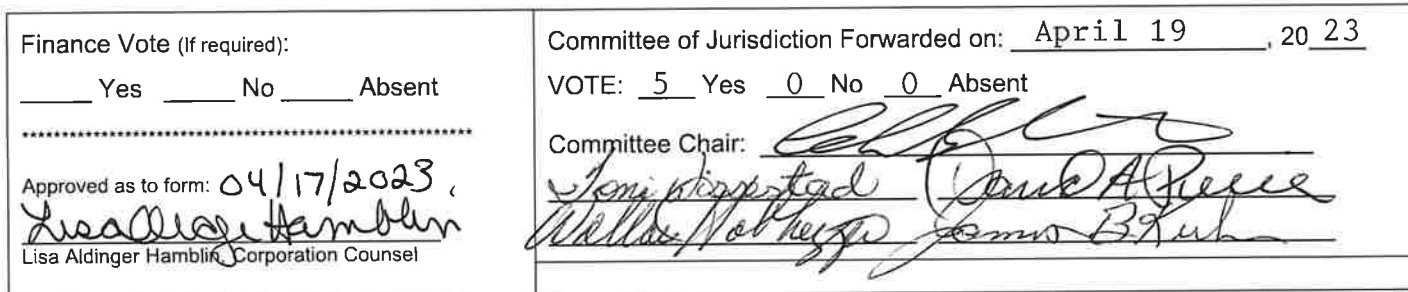 Finance Vote (If required):
_____ Yes _____ No _____ Absent
******************************************************
Approved as to form: 04/17/2023,
Lisa Aldinger Hamblin
Lisa Aldinger Hamblin, Corporation Counsel
Committee of Jurisdiction Forwarded on: April 19, 20 23
VOTE: 5 Yes 0 No 0 Absent
Committee Chair:
David A Pierce
James B